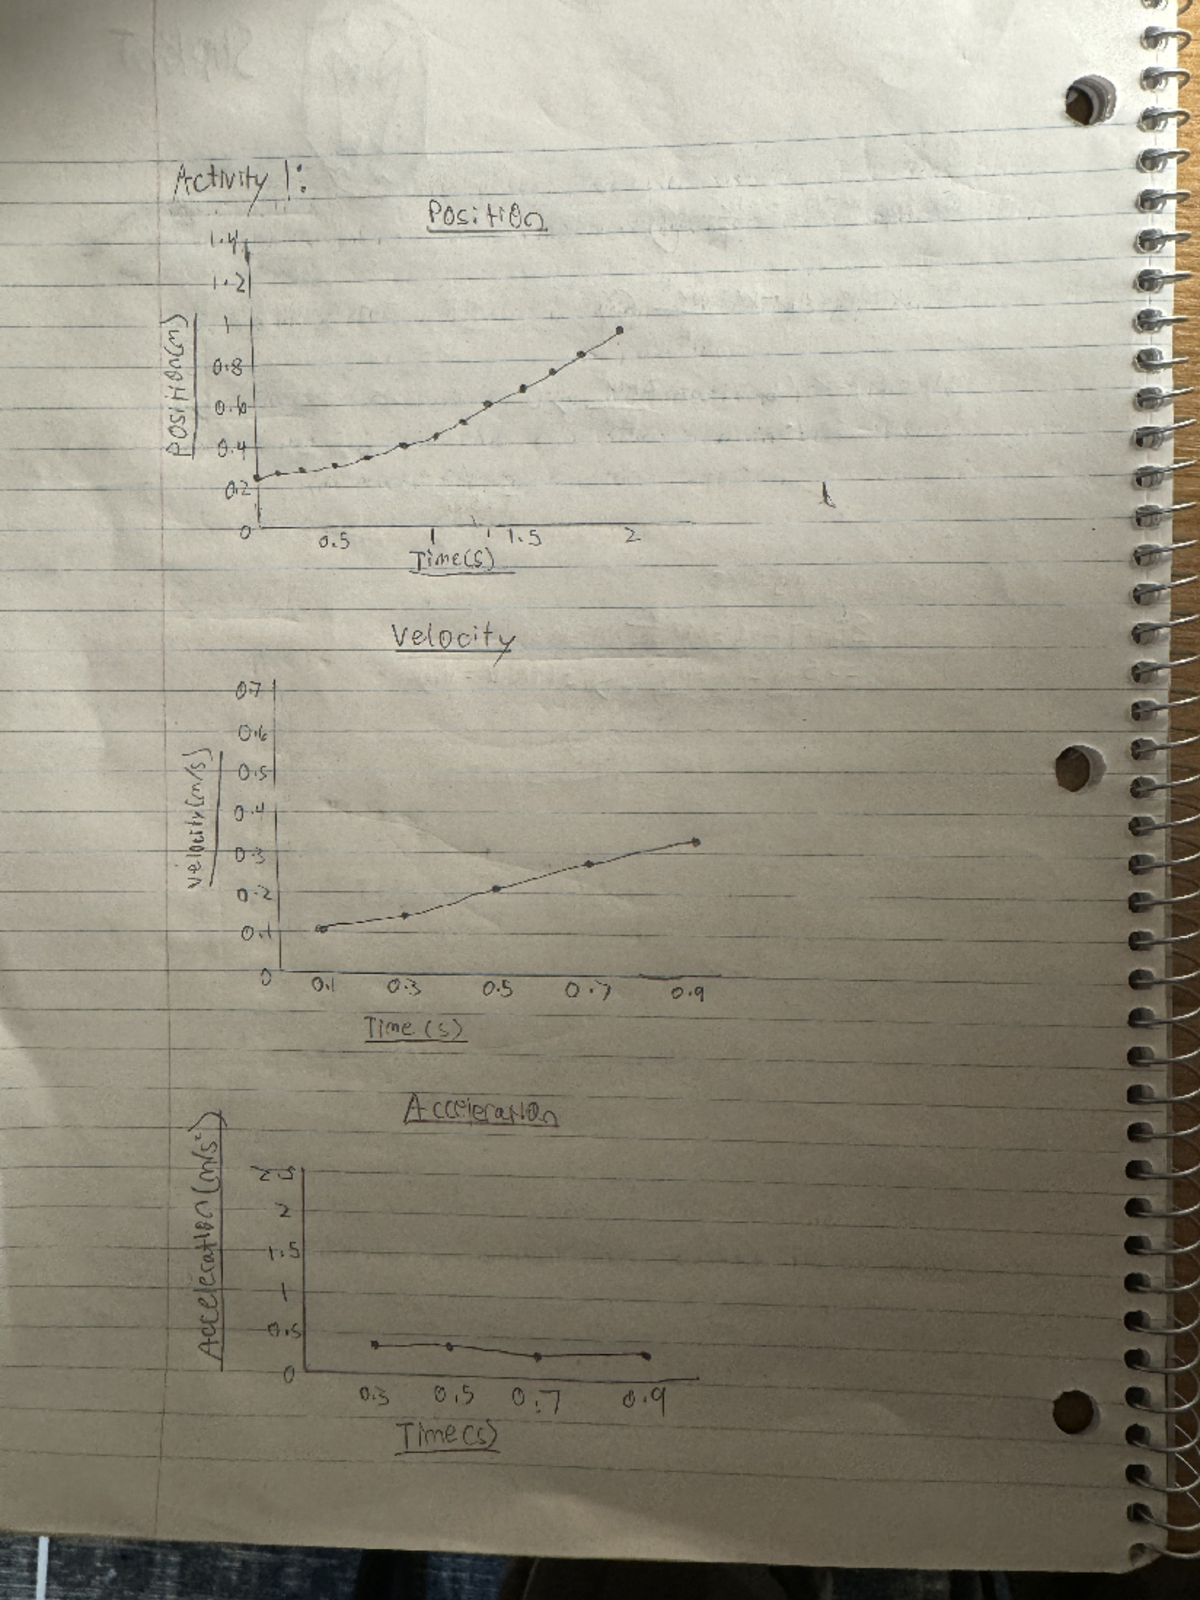 Activity 1:
Position
1.4
1.2
1
0.8
0.6
0.4
0.2
0
Position(m)
0.5 1 1.5 2
Time(s)
Velocity
0.7
0.6
0.5
0.4
0.3
0.2
0.1
0
Velocity(m/s)
0.1 0.3 0.5 0.7 0.9
Time (s)
Acceleration
2.5
2
1.5
1
0.5
0
Acceleration(m/s²)
0.3 0.5 0.7 0.9
Time(s)